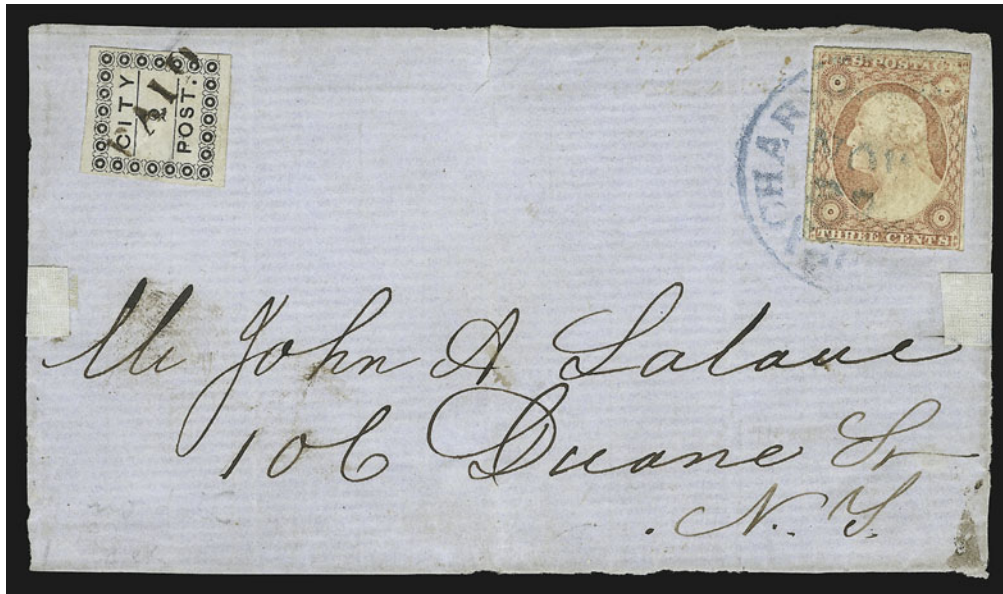 CITY
POST.
PAID
U.S. POSTAGE
THREE CENTS
CHAR
NOV
Mr John A Lalane
106 Duane St
N. Y.